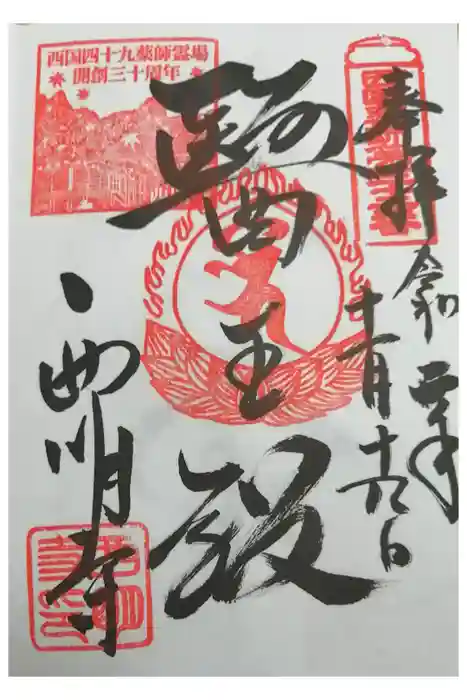 西国四十九薬師霊場
開創三十周年
奉拝
令和二年
十一月十九日
醫王殿
西明寺